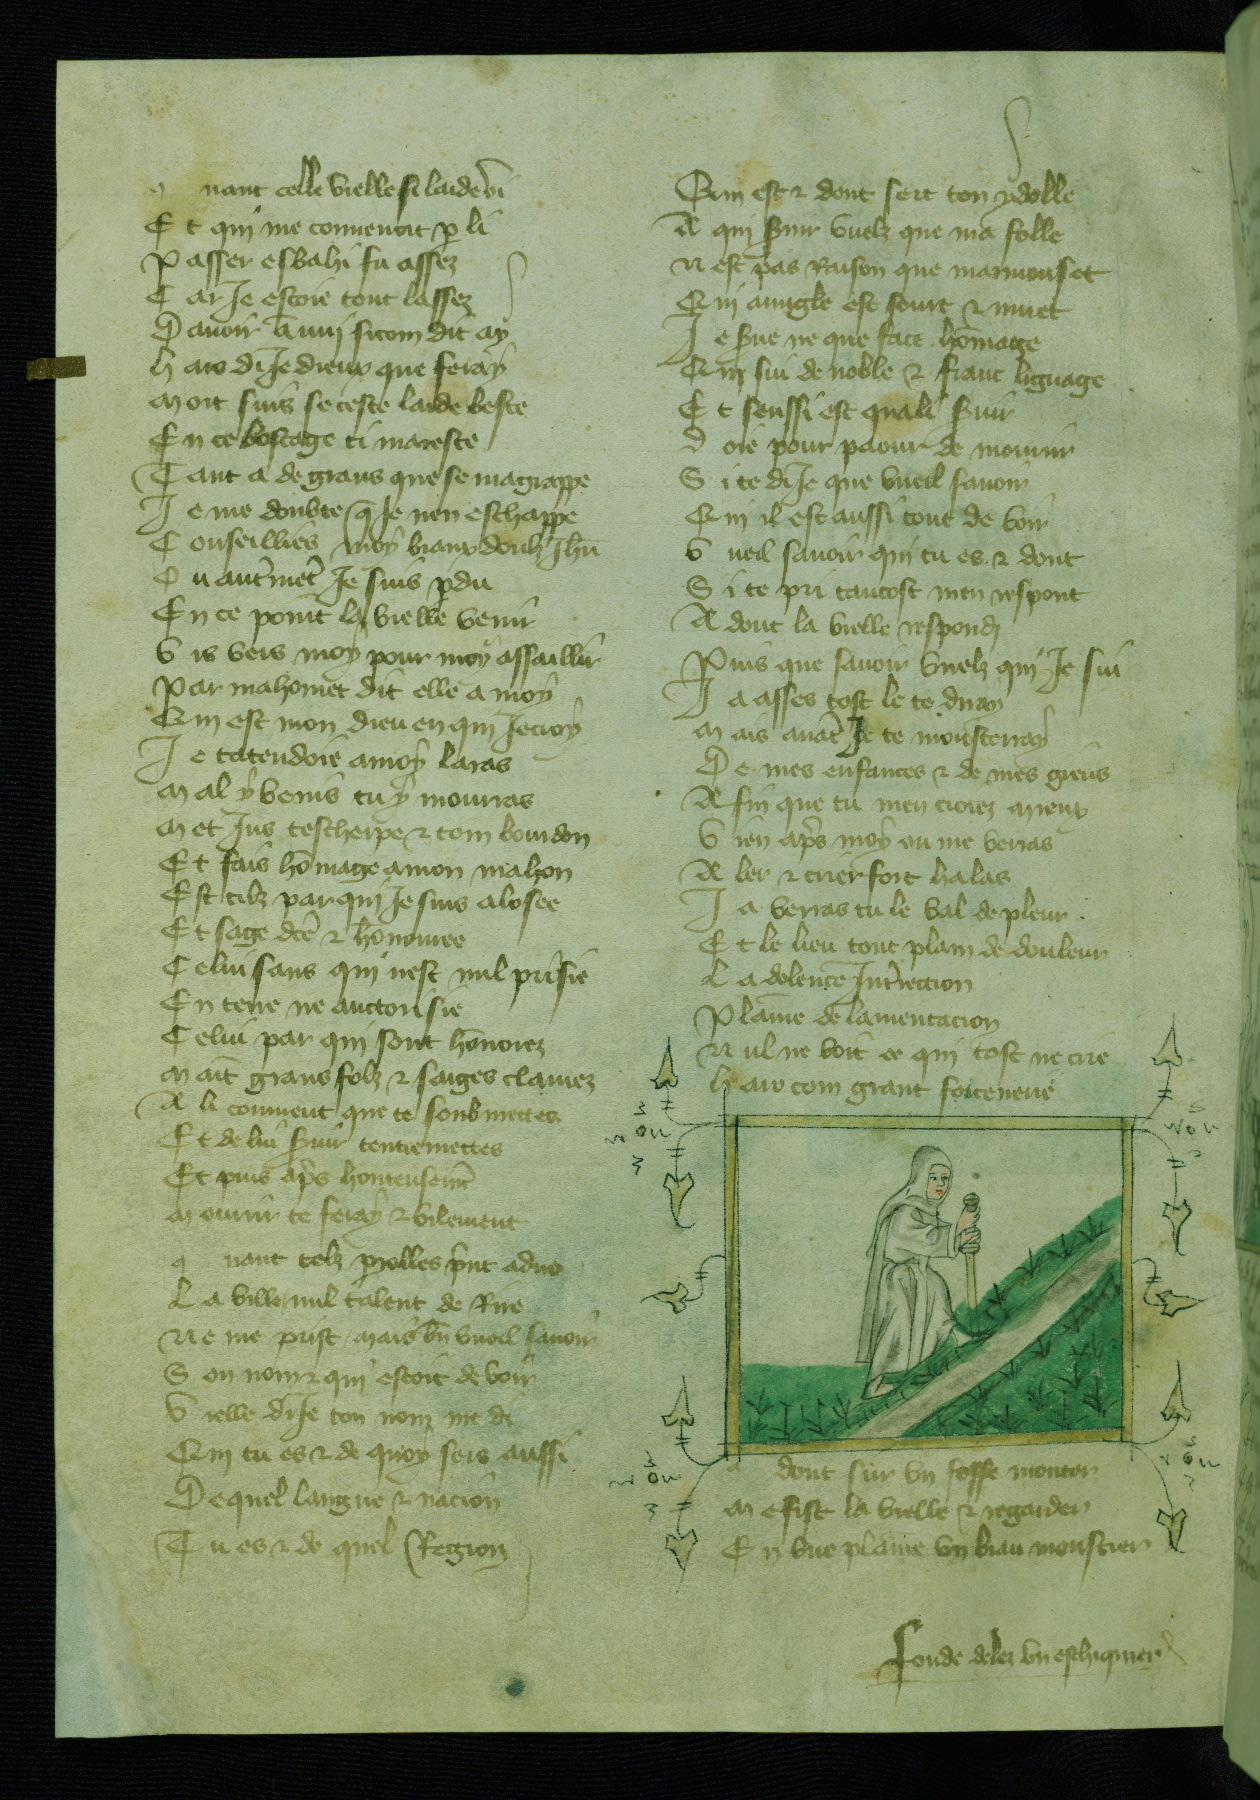 q uant celle vielle si laide vi
E t qui me convenoit p li
P asser esbahi fu assez
C ar Je estoie tout lassez
D avoir
h aro di Je dieux que feray
M ort suis se ceste laide beste
E n ce boscage ci mareste
T ant a de grans que se magrappe
J e me doubte q Je nen eschappe
C onseillies moy biaux doulz Jhu
O u autmet Je suis pdu
E n ce point la vielle venir
V is vers moy pour moy assaillir
P ar mahomet dit elle a moy
Q ui est mon dieu en qui Je croy
J e tatendoie a moy laras
M al y venis tu y mourras
M et Jus tescherpe & tom bourdon
E t fais homage a mon mahon
E st cilz par qui Je suis alosee
E t sage dce & honnouree
C elui sans qui nest nul prisie
E n terre ne auctorisie
C elui par qui sont honorez
M ait grans folz & saiges clamez
A li convient que te soubmettes
E t de lui svir tentremettes
E t puis aps honteusemt
M ourir te feray & vilement
q uant telz parolles
L a ville nul talent de Rire
N e me prist mais bn vueil savoir
S on nom & qui estoit de voir
V ielle di Je ton nom me di
Q ui tu es & de quoy sers aussi
D e quel langue & nacion
T u es & de quel Region
Q ui est & dont sert ton ydolle
A qui svir vuelz que ma folle
N est pas Raison que marmouset
Q ui avugle est sourt & muet
J e sve ne que face homage
Q ui sui de noble & franc lignage
E t seussi est qua li svir
D oie pour paour de mourir
S i te di Je que vueil savoir
Q ui il est aussi tout de voir
V ueil savoir qui tu es & dont
S i te pri tantost men respont
A dont la vielle respondi
P uis que savoir vuelz qui Je sui
J a asses tost le te diray
M ais avat Je te monsterray
D e mes enfances & de mes gieus
A fin que tu men croiez mieux
V ien aps moy ou me verras
A ler & crier fort halas
J a verras tu le val de pleur
E t le lieu tout plain de douleur
L a dolente
P laine de lamentacion
N ul ne voit ce qui tost ne crie
h aro com grant forcenerie
a dont sur un fosse monter
M e fist la vielle & regarder
E n une plaine un biau monstier
Fonde delez un eschiquier